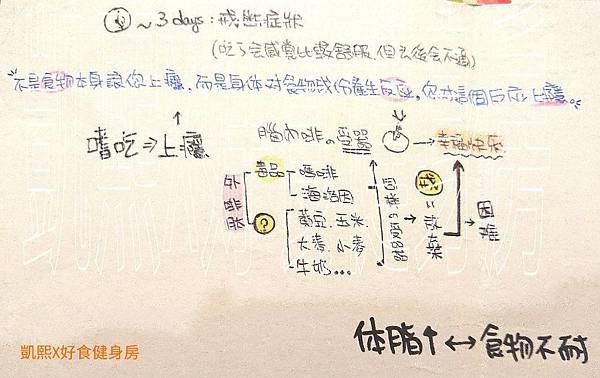 ~3 days:戒斷症狀
(吃了会感覺比較舒服,但之後会不適)
"不是食物本身讓您上癮,而是身体対食物成份產生反应,您对這個反应上癮。
嗜吃⇒上癮
腦內啡の受器 → 幸福快乐
外啡肽
毒品 嗎啡
海洛因
? 黄豆、玉米
大麥、小麥
牛奶...
戒
困難
体脂↑↔食物不耐
凱熙X好食健身房